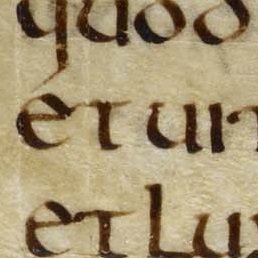 quod
et uir
et lu